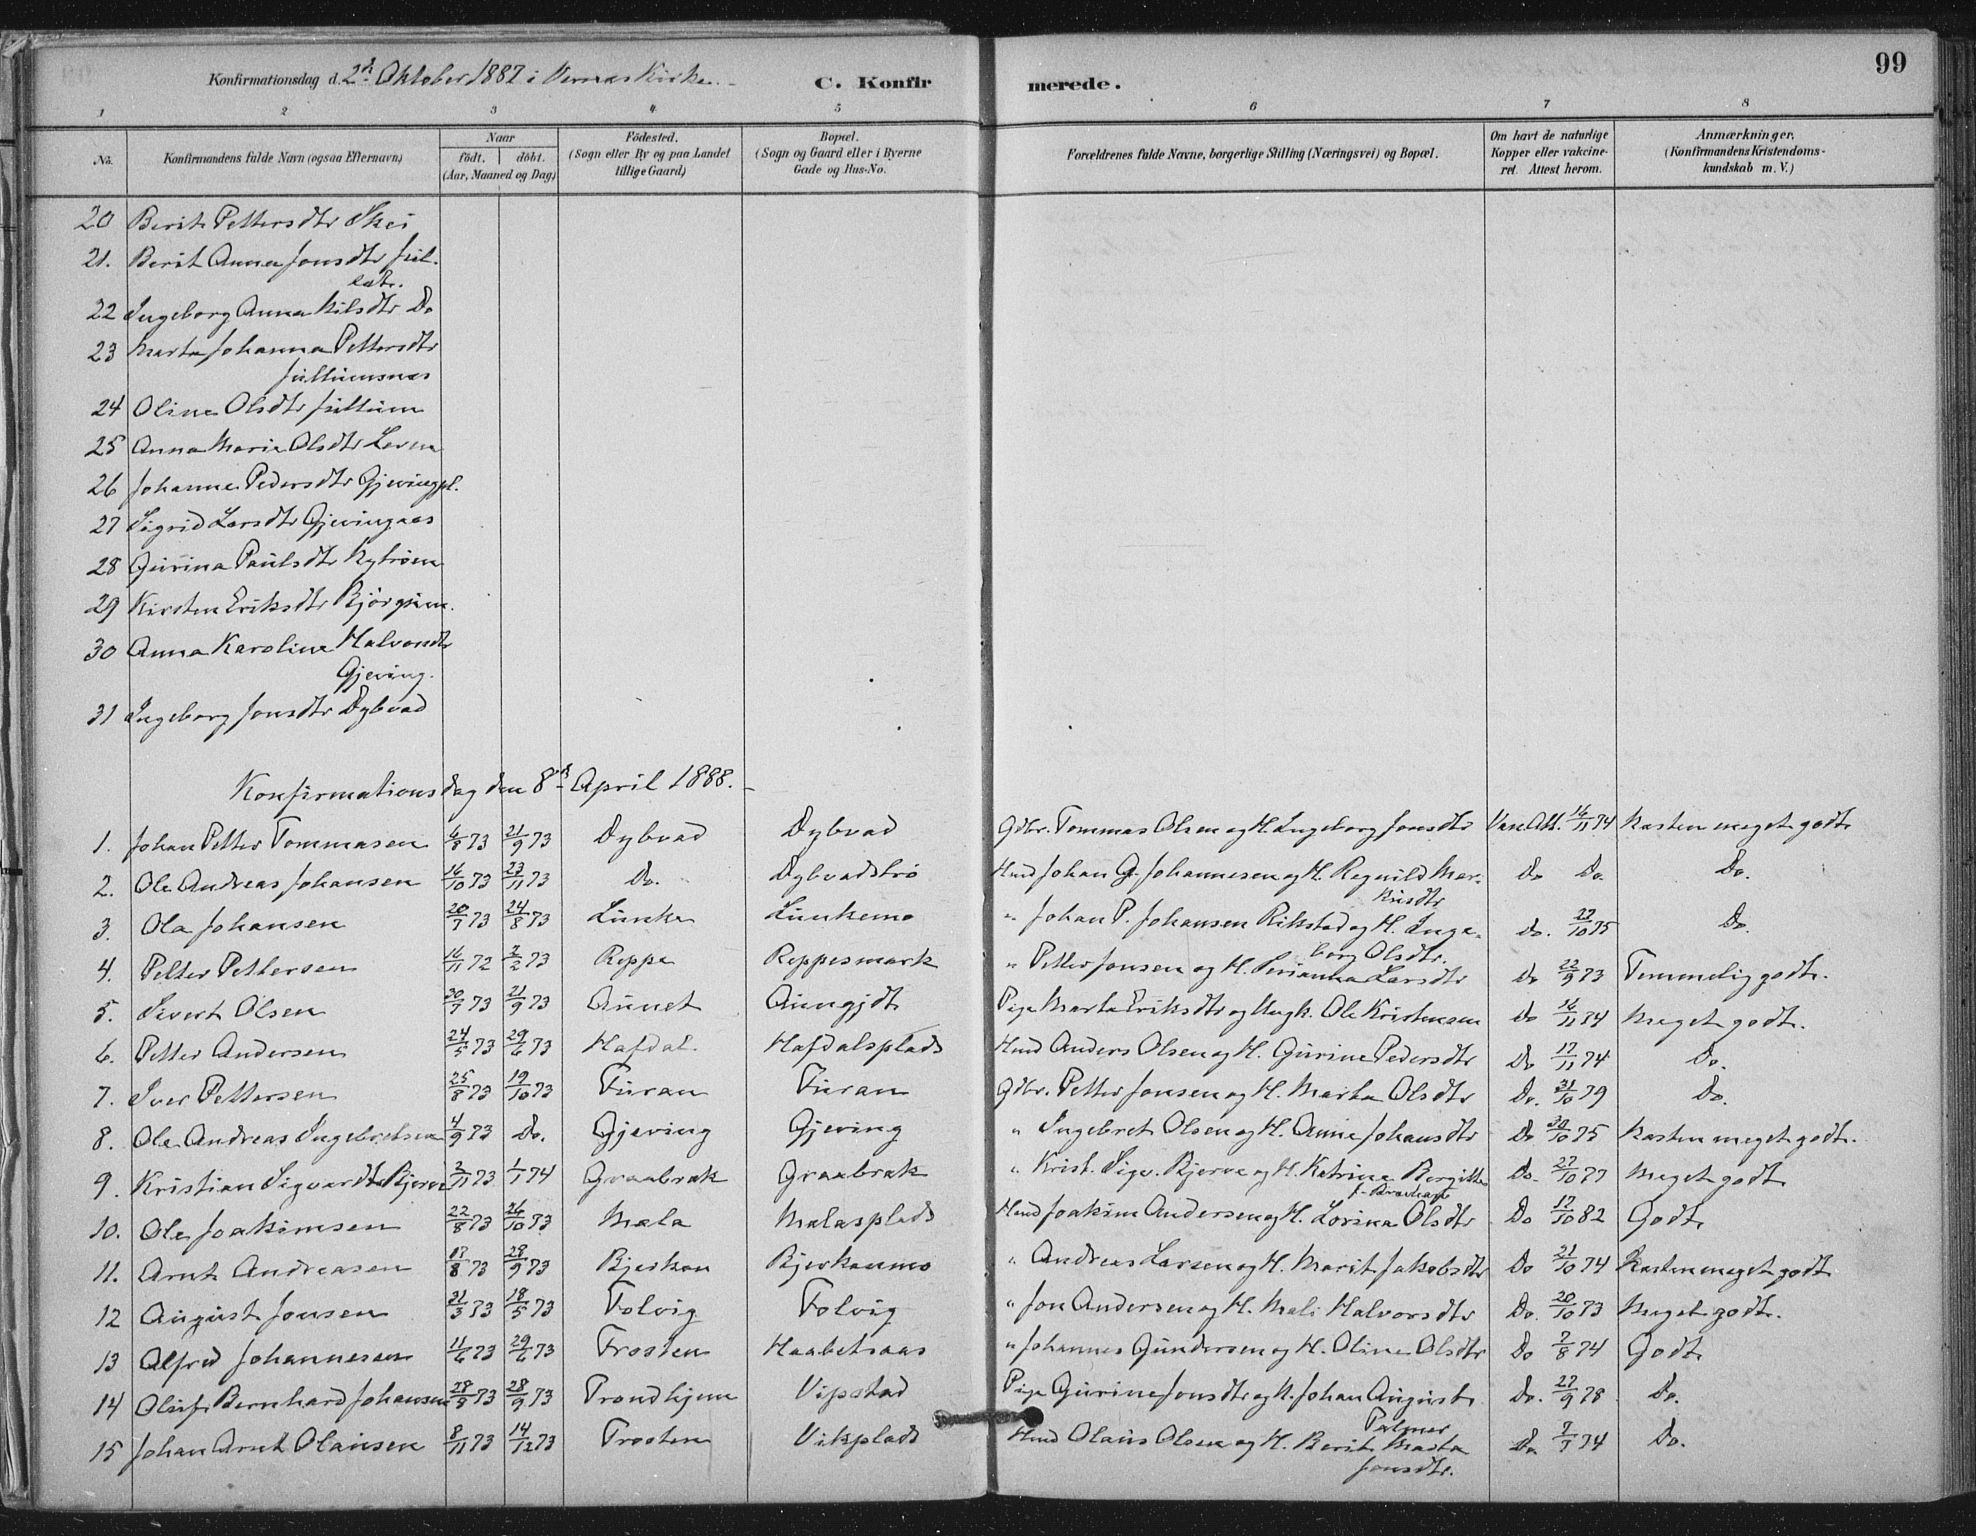 99
Konfirmationsdag d. 2den Oktober 1887 i Vernes Kirke.
C. Konfirmerede.
1 2 3 4 5 6 7 8
No. Konfirmandens fulde Navn (ogsaa Efternavn) Naar födt. döbt. (Aar, Maaned og Dag) Födested. (Sogn eller By og paa Landet tillige Gaard) Bopæl. (Sogn og Gaard eller i Byerne Gade og Hus-No. Forældrenes fulde Navne, borgerlige Stilling (Næringsvei) og Bopæl. Om havt de naturlige Kopper eller vakcineret. Attest herom. Anmærkninger. (Konfirmandens Kristendomskundskab m. V.)
20 Berit Pettersdtr Skei
21. Berit Anna Jonsdtr
22 Ingeborg Anna Nilsdtr Do
23 Marta Johanna Pettersdtr
Jullumsnes
24 Oline Olsdtr Jullum
25 Anna Maria Olsdtr
26 Johanna Pedersdtr Gjevingpl.
27 Sigrid Larsdtr Gjevingaas
28 Gurina Paulsdtr
29 Kirsten Eriksdtr Bjørgum.
30 Anna Karoline Halvorsdtr
Gjeving.
31 Ingeborg Jonsdtr Dybvad
Konfirmationsdag den 8de April 1888.
1. Johan Petter Tommasen 6/8 73 21/9 73 Dybvad Dybvad Gdbr. Tommas Olsen og H. Ingeborg Jonsdtr Vacc. Att. 16/11 74 Næsten meget godt
2. Ole Andreas Johansen 16/10 73 23/11 73 Do. Dybvadstrø Hmd Johan G. Johannesen og H. Regnild Mar- Do Do. Do.
3. Ola Johansen 20/7 73 24/8 73 Lunke Lunkemo " Johan P. Johansen Rikstad og H. Inge- Do. 27/10 75 Do.
borg Olsdtr.
4. Petter Pettersen 16/11 72 2/2 73 Reppe Reppesmark " Petter Jonsen og H. Larsdtr Do 22/9 73 Temmelig godt.
5. Sivert Olsen 20/7 73 21/9 73 Aunet Aungjdt Pige Marta Eriksdtr og Ungk. Ole Kristensen Do 16/11 74 Meget godt.
6. Petter Andersen 24/5 73 29/6 73 Hafdal. Hafdalsplads Hmd Anders Olsen og H. Gurine Pedersdtr Do 17/11 74 Do.
7. Iver Pettersen 25/8 73 19/10 73 Furan Furan Gdbr. Petter Jonsen og H. Marta Olsdtr Do. 31/10 79 Do.
8. Ole Andreas Ingebretsen 4/9 73 Do. Gjeving Gjeving " Ingebret Olsen og H. Anne Johansdtr Do 30/10 75 Næsten meget godt.
9. Kristian Sigvardt Bjerve 2/11 73 1/1 74 Graabræk Graabræk " Krist. Sigv. Bjerve og H. Katrine Bergitte Do. 27/10 77 Meget godt
10. Ole Joakimsen 22/8 73 26/10 73 Mæla Mælasplads Hmd Joakim Andersen og H. Lovina Olsdtr Do 17/10 82 Godt
11. Arnt Andreasen 17/8 73 28/9 73 Bjerkan Bjerkanmo " Andreas Larsen og H. Marit Jakobsdtr Do 21/10 74 Næsten meget godt
12 August Jonsen 31/3 73 18/5 73 Folvig Folvig " Jon Andersen og H. Mali Halvorsdtr Do. 20/10 73 Meget godt.
13 Alfred Johannesen 11/6 73 29/6 73 Frosten Haabetsaas " Johannes Gundersen og H. Oline Olsdtr Do 7/8 74 Godt
14 Oluf Bernhard Johansen 28/8 73 28/9 73 Trondhjem Vipstad Pige Gurine Jonsdtr og Johan August Do. 27/9 78 Do.
Palmer
15 Johan Arnt Olausen 8/11 73 14/12 73 Frosten Vikplads Hmd Olaus Olsen og H. Berit Marta Do. 7/7 74 Do.
Jonsdtr.